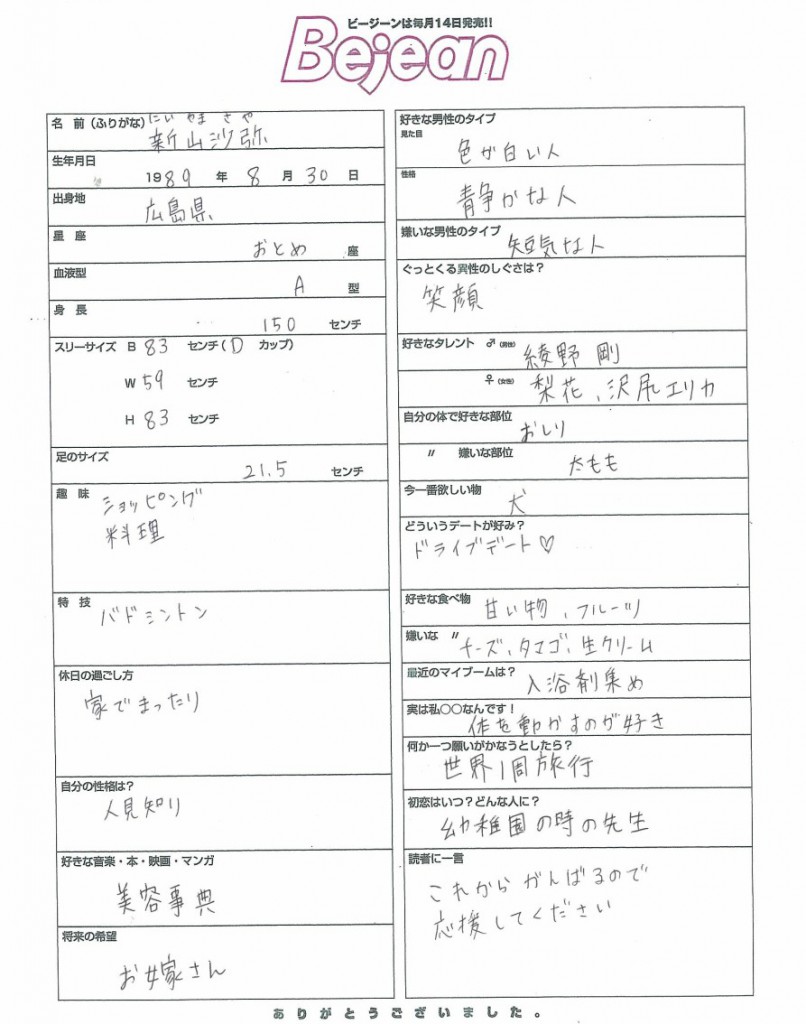 ビージーンは毎月14日発売!!
Bejean
名 前 (ふりがな) にい やま さや
新山沙弥
生年月日
1989 年 8 月 30 日
出身地
広島県
星 座
おとめ 座
血液型
A 型
身 長
150 センチ
スリーサイズ B 83 センチ( D カップ)
W 59 センチ
H 83 センチ
足のサイズ
21.5 センチ
趣 味 ショッピング
料理
特 技
バドミントン
休日の過ごし方
家でまったり
自分の性格は?
人見知り
好きな音楽・本・映画・マンガ
美容事典
将来の希望
お嫁さん
好きな男性のタイプ
見た目
色が白い人
性格
青争かな人
嫌いな男性のタイプ
短気な人
ぐっとくる異性のしぐさは?
笑顔
好きなタレント ♂ (男性) 綾野 剛
♀ (女性) 梨花、沢尻エリカ
自分の体で好きな部位
おしり
〃 嫌いな部位
太もも
今一番欲しい物
犬
どういうデートが好み?
ドライブデート♡
好きな食べ物
甘い物、フルーツ
嫌いな 〃
チーズ、タマゴ、生クリーム
最近のマイブームは?
入浴剤集め
実は私○○なんです!
体を動かすのが好き
何か一つ願いがかなうとしたら?
世界1周旅行
初恋はいつ?どんな人に?
幼稚園の時の先生
読者に一言
これから がんばるので
応援してください
ありがとうございました。